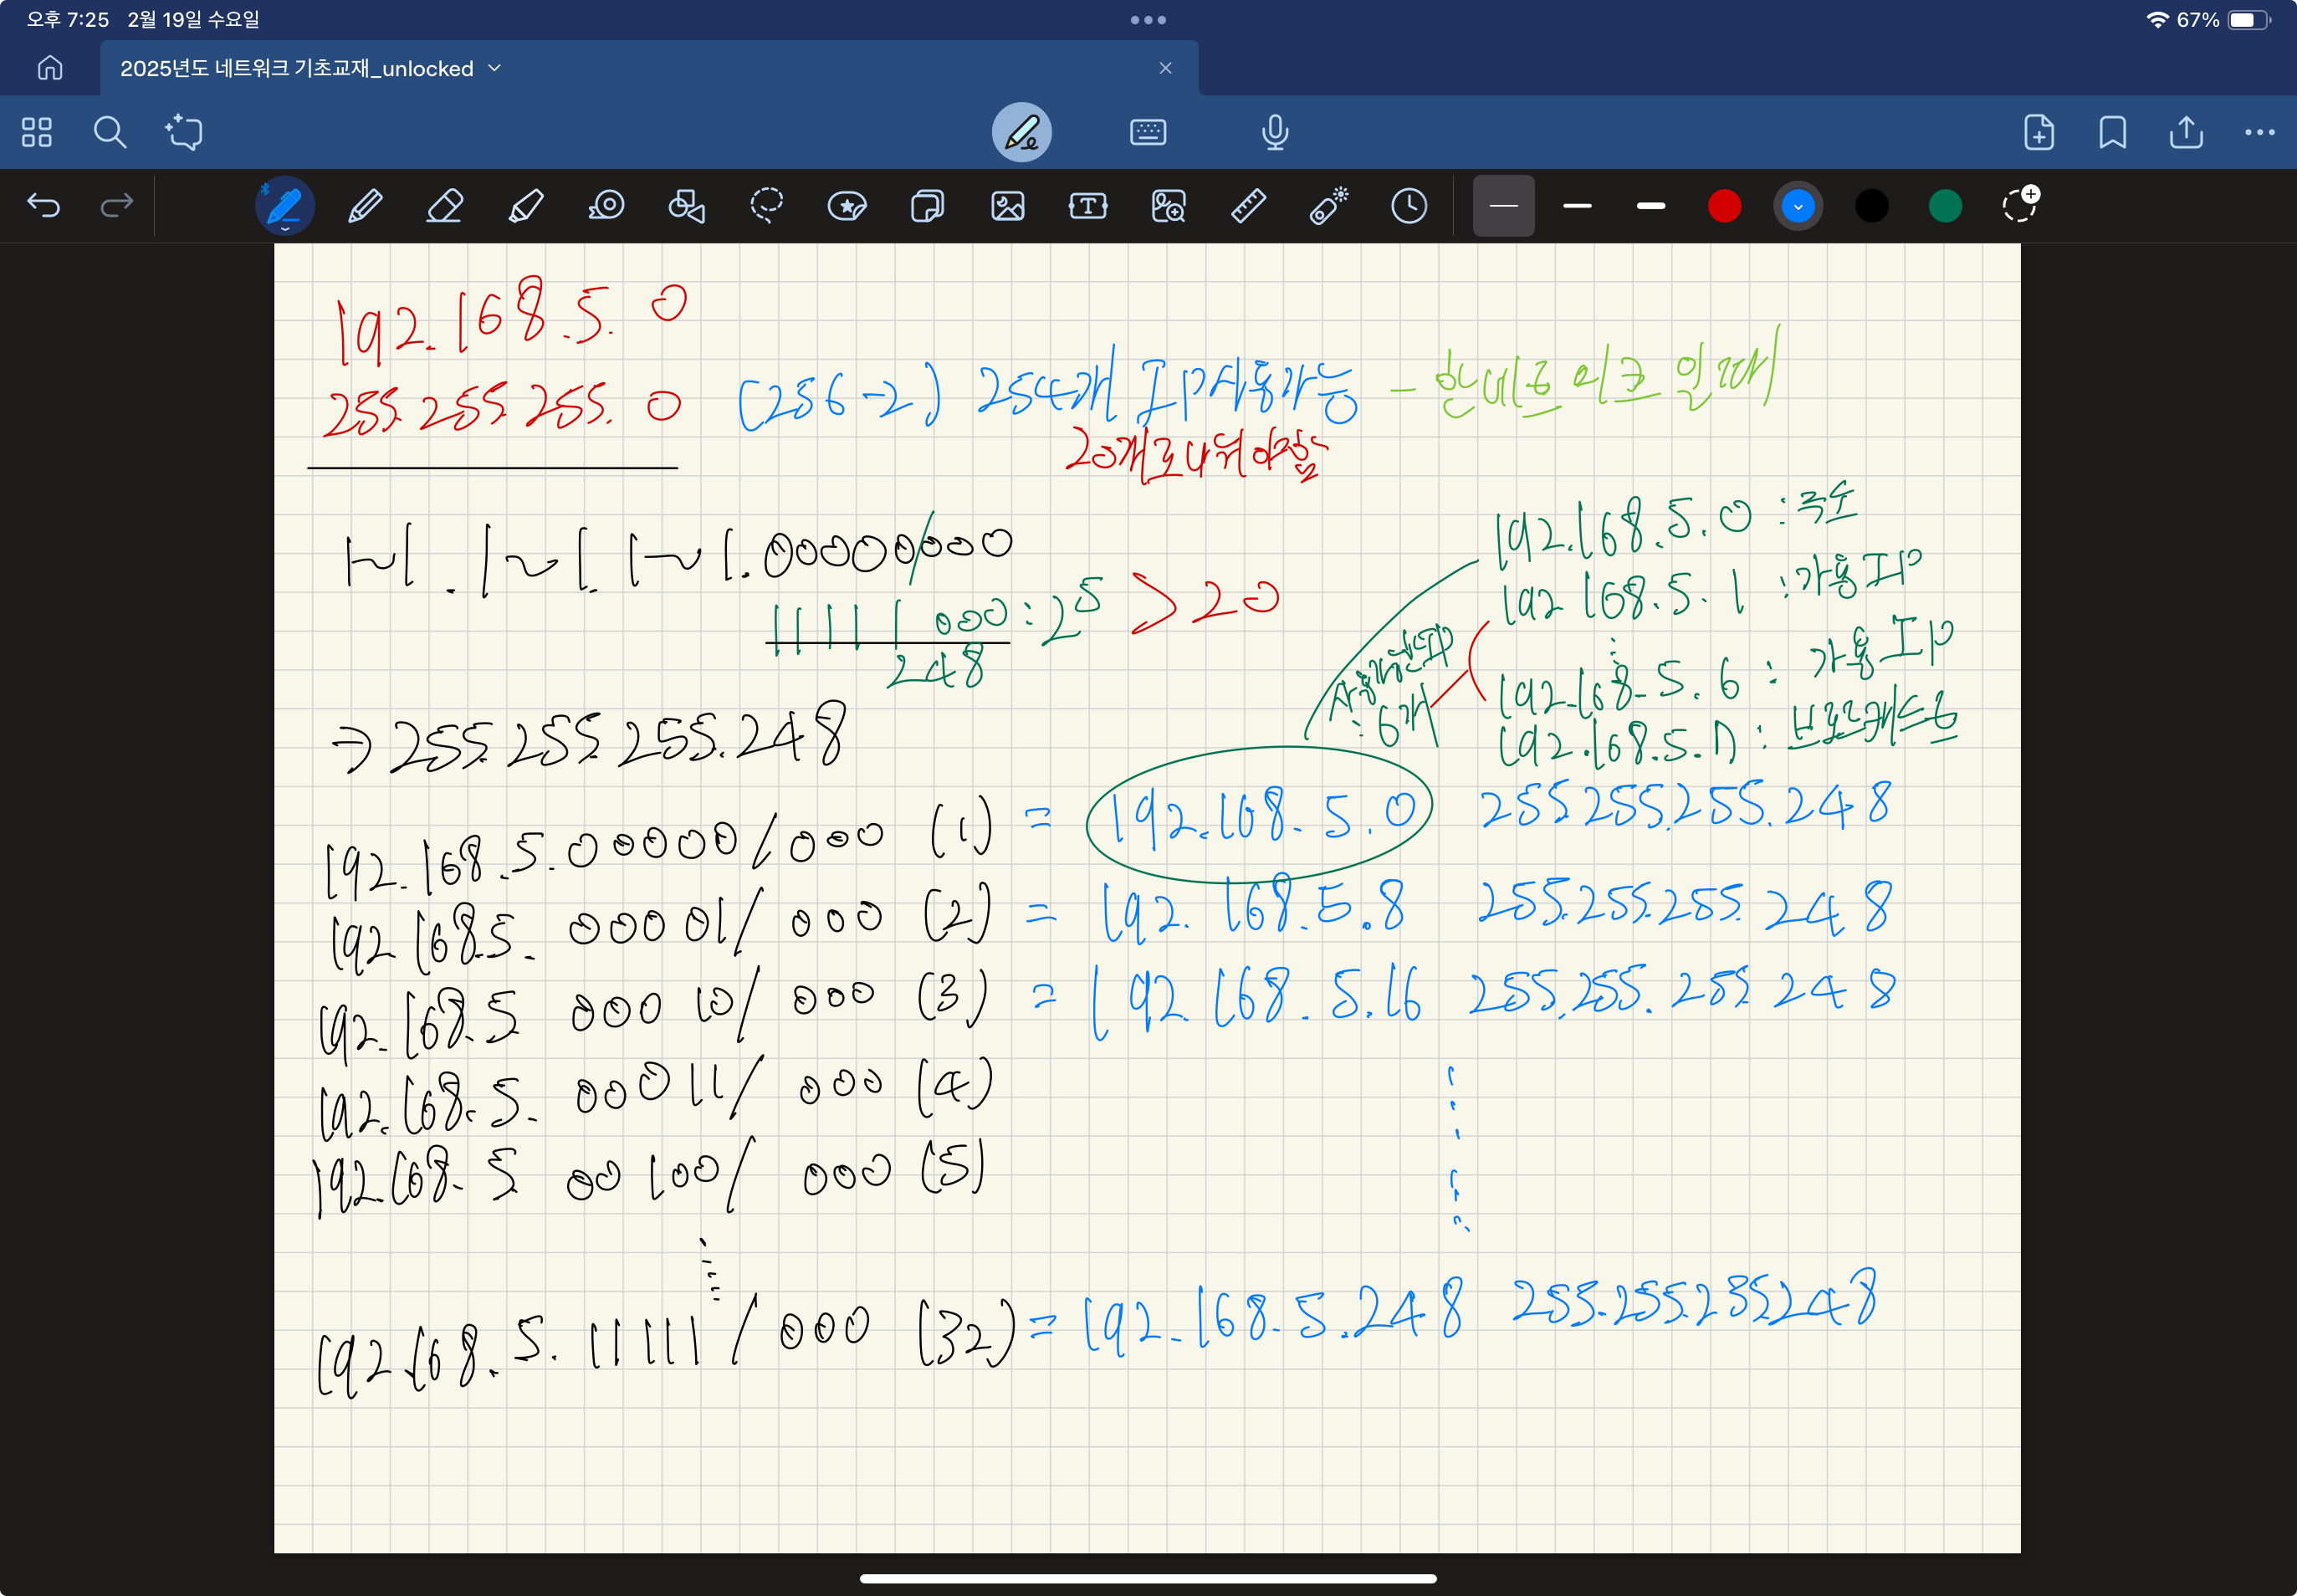 오후 7:25 2월 19일 수요일
67%
2025년도 네트워크 기초교재_unlocked
192.168.5.0
255.255.255.0 (256-2) 254개 IP사용가능 - 한 네트워크 일때
20개로 나눠야함
1~1.1~1.1~1.00000/000
11111 000 : 2⁵ > 20
248
192.168.5.0 : 국수
192.168.5.1 : 가용 IP
192.168.5.6 : 가용 IP
192.168.5.7 : 브로드캐스트
: 6개
⇒ 255.255.255.248
192.168.5.00000/000 (1) = 192.168.5.0 255.255.255.248
192.168.5.00001/000 (2) = 192.168.5.8 255.255.255.248
192.168.5 00010/000 (3) = 192.168.5.16 255.255.255.248
192.168.5. 00011/000 (4)
192.168.5 00100/000 (5)
192.168.5.11111/000 (32) = 192.168.5.248 255.255.255.248